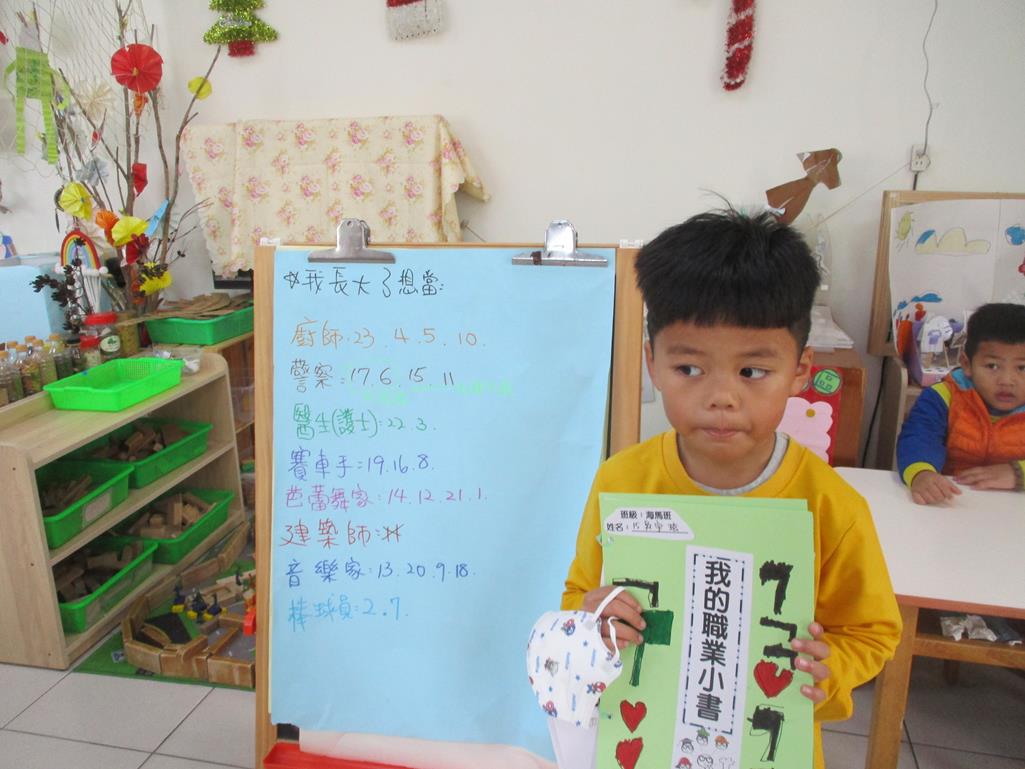 ☆我長大了想當:
廚師:23.4.5.10.
警察:17.6.15.11
醫生(護士):22.3.
賽車手:19.16.8.
芭蕾舞家:14.12.21.1.
建築師:
音樂家:13.20.9.18.
棒球員:2.7.
班級:海馬班
姓名:15
我的職業小書